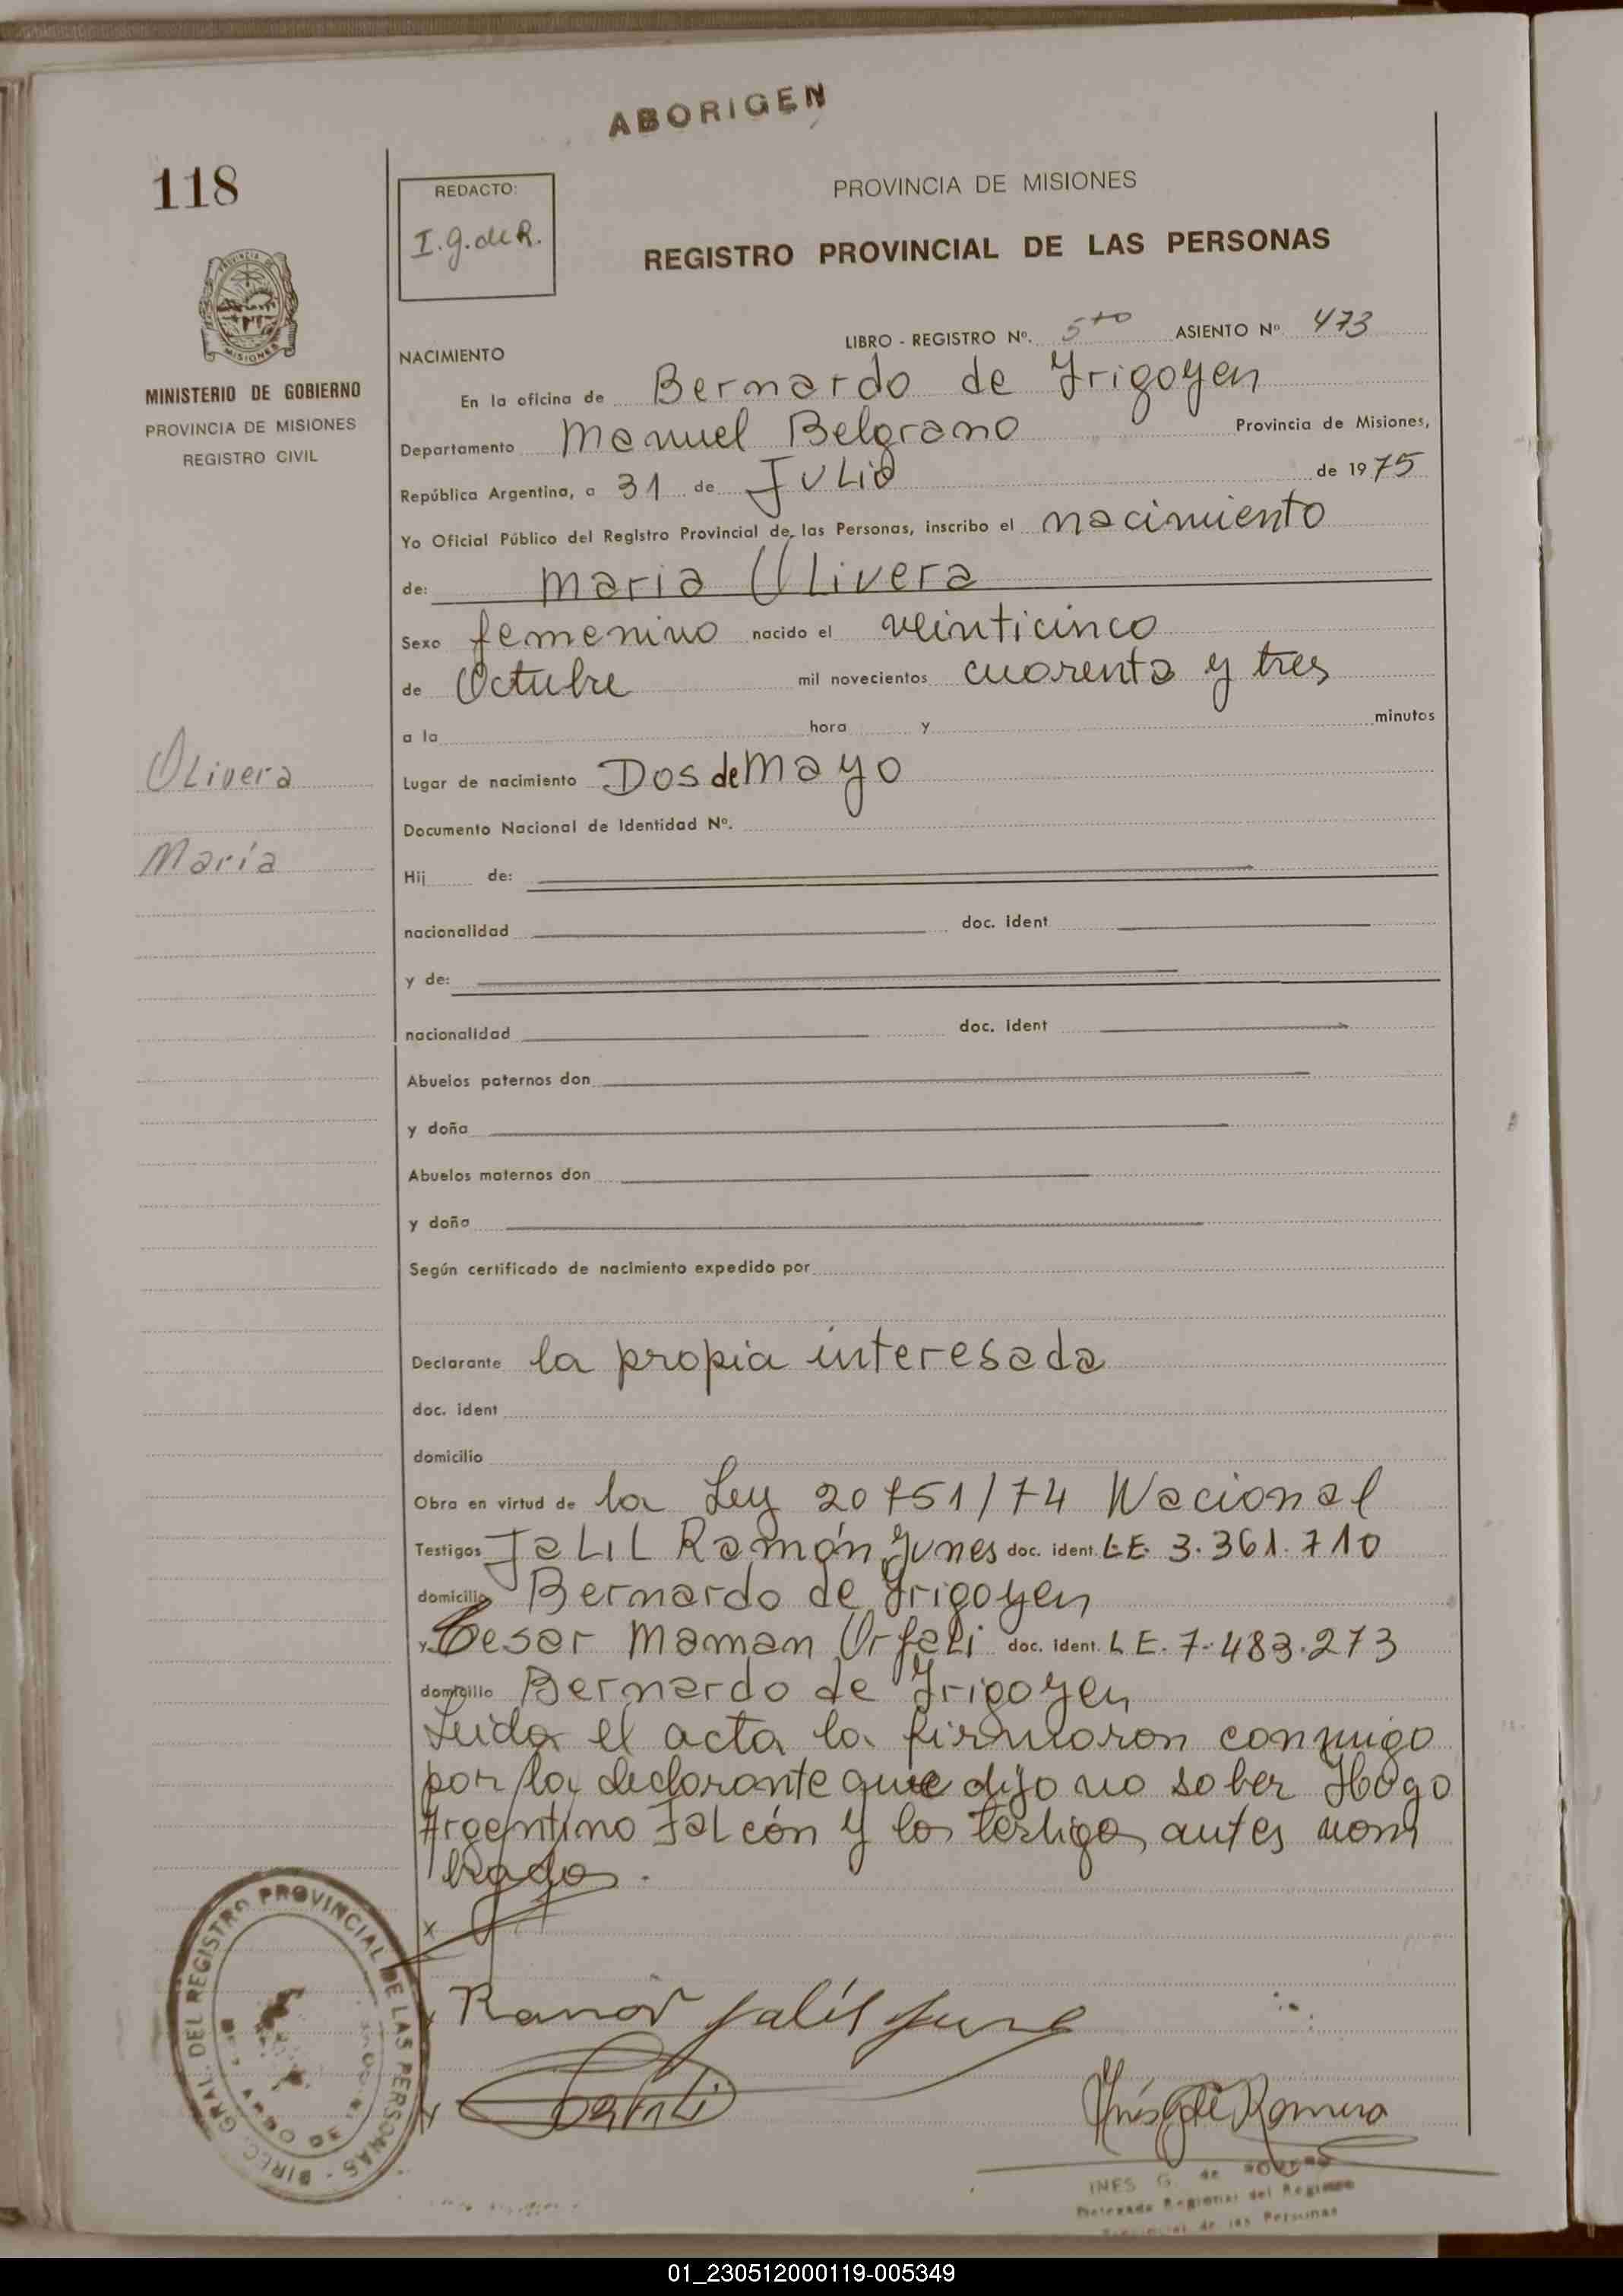 ABORIGEN
118
REDACTO:
I. g. de R.
PROVINCIA DE MISIONES
REGISTRO PROVINCIAL DE LAS PERSONAS
MISIONES
MINISTERIO DE GOBIERNO
PROVINCIA DE MISIONES
REGISTRO CIVIL
LIBRO - REGISTRO Nº. 5to ASIENTO Nº 473
NACIMIENTO
En la oficina de Bernardo de Yrigoyen
Departamento Manuel Belgrano Provincia de Misiones,
República Argentina, a 31 de JULIO de 1975
Yo Oficial Público del Registro Provincial de las Personas, inscribo el nacimiento
de: Maria Olivera
Sexo femenino nacido el veinticinco
de Octubre mil novecientos cuarenta y tres
a la hora y minutos
Olivera
María
Lugar de nacimiento Dos de Mayo
Documento Nacional de Identidad Nº.
Hij de:
nacionalidad doc. ident
y de:
nacionalidad doc. ident
Abuelos paternos don
y doña
Abuelos maternos don
y doña
Según certificado de nacimiento expedido por
Declarante la propia interesada
doc. ident
domicilio
Obra en virtud de la Ley 20751/74 Nacional
Testigos JaLiL Ramón Yunes doc. ident. L.E. 3.361.710
domicilio Bernardo de Yrigoyen
y Cesar Maman Orfali doc. ident. L E. 7.483.273
domicilio Bernardo de Yrigoyen
Leida el acta la firmaron conmigo
por la declarante que dijo no saber Hugo
Argentino Falcón y los testigos antes nom
brados.
DIREC. GRAL. DEL REGISTRO PROVINCIAL DE LAS PERSONAS
Ramón Jalil Yune
Inés G de Romero
INES G. de ROMERO
Delegada Regional del Registro
Provincial de las Personas
01_230512000119-005349